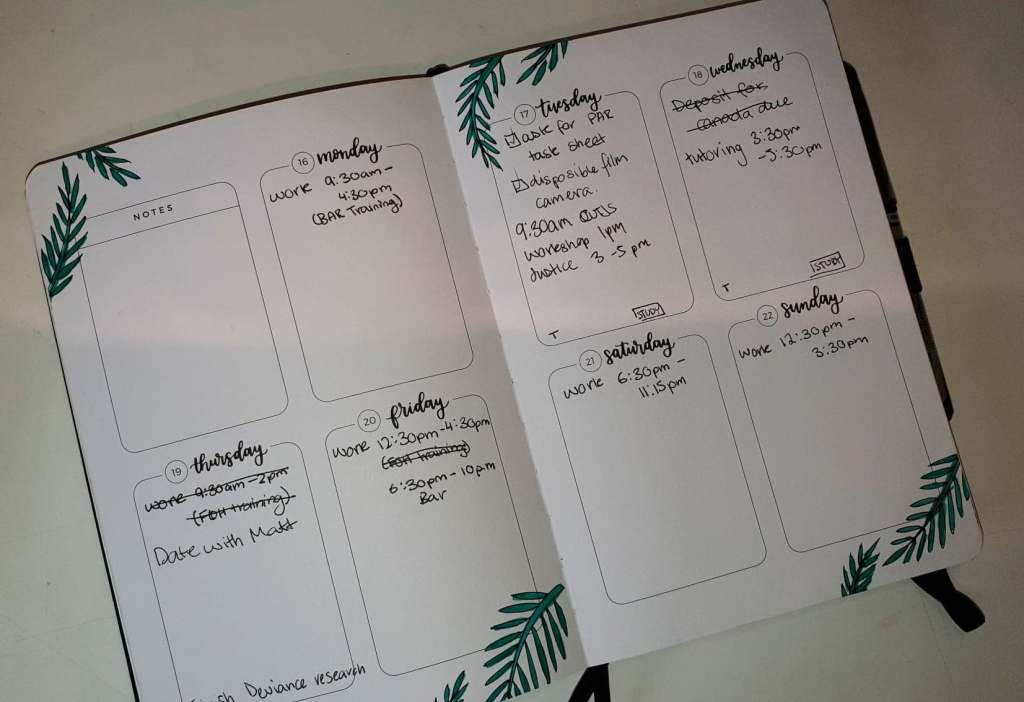 NOTES
16 monday
work 9:30am -
4:30pm
(BAR Training)
19 thursday
work 9:30am - 2pm
(FOH training)
Date with Matt
Deviance research
20 friday
work 12:30pm-4:30pm
(FOH training)
6:30pm - 10pm
Bar
17 tuesday
ask for PAR
task sheet
disposible film
camera.
9:30am
workshop 1pm
Justice 3 -5pm
STUDY
T
18 wednesday
Deposit for
canada due
tutoring 3:30pm
-5:30pm
STUDY
T
21 saturday
work 6:30pm -
11:15pm
22 sunday
work 12:30pm -
3:30pm